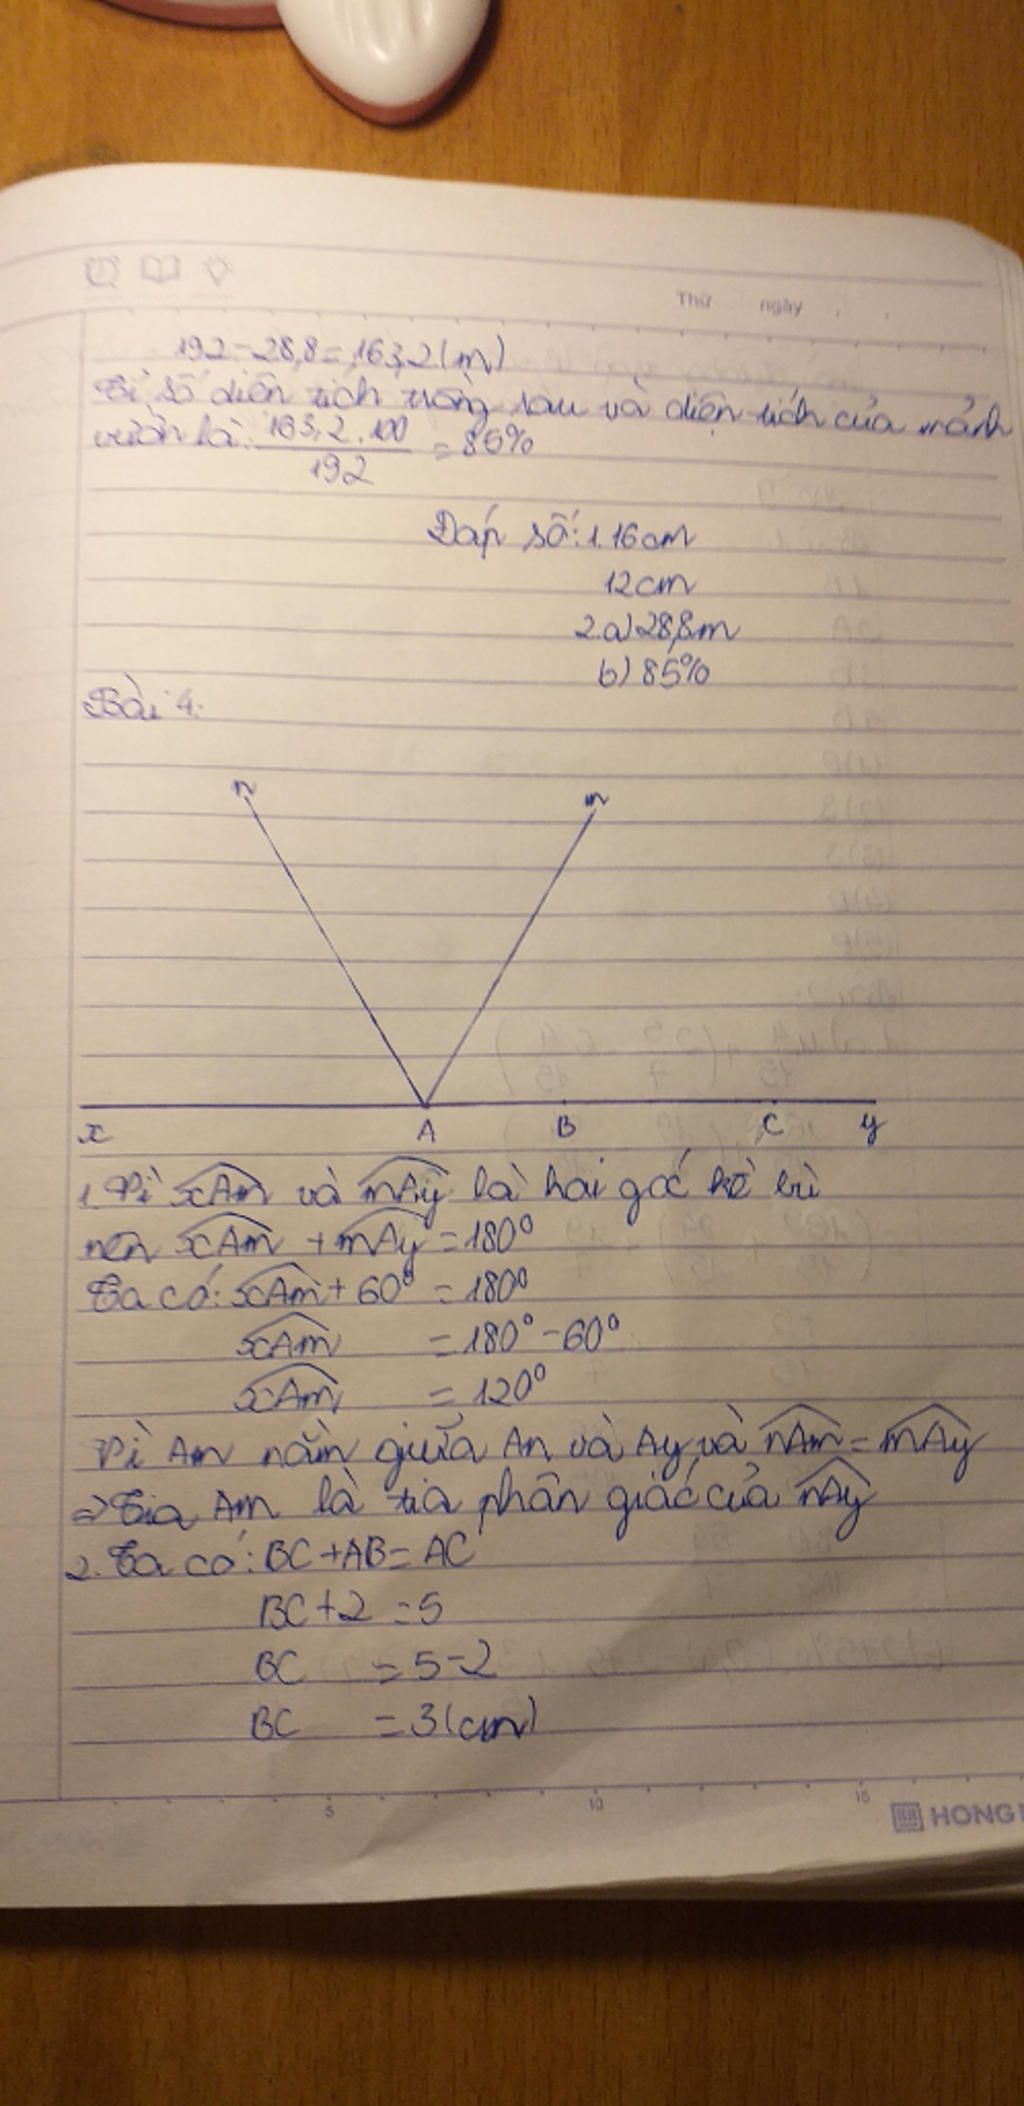 Thứ ngày
192 - 28,8 = 163,2 (m)
Tỉ số diện tích trồng rau và diện tích của mảnh
vườn là: 163,2 . 100 / 192 = 85%
Đáp số: 1. 16cm
12cm
2. a) 28,8m
b) 85%
Bài 4:
n m
x A B C y
1. Vì xAm và mAy là hai góc kề bù
nên xAm + mAy = 180°
Ta có: xAm + 60° = 180°
xAm = 180° - 60°
xAm = 120°
Vì Am nằm giữa An và Ay và nAm = mAy
=> Tia Am là tia phân giác của nAy
2. Ta có: BC + AB = AC
BC + 2 = 5
BC = 5 - 2
BC = 3 (cm)
5 10 15
HONG